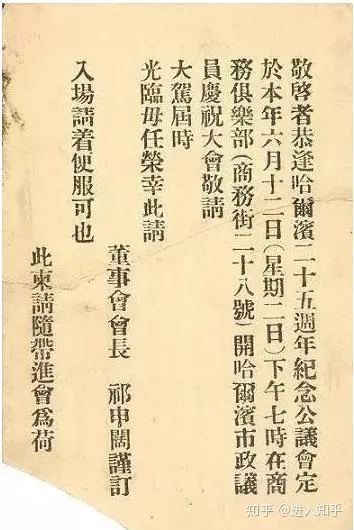 敬啓者恭逢哈爾濱二十五週年紀念公議會定
於本年六月十二日(星期二日)下午七時在商
務俱樂部(商務街二十八號)開哈爾濱市政議
員慶祝大會敬請
大駕屆時
光臨毋任榮幸此請
董事會會長　祁申闊謹訂
入場請着便服可也
此柬請隨帶進會爲荷
知乎 @进人知乎